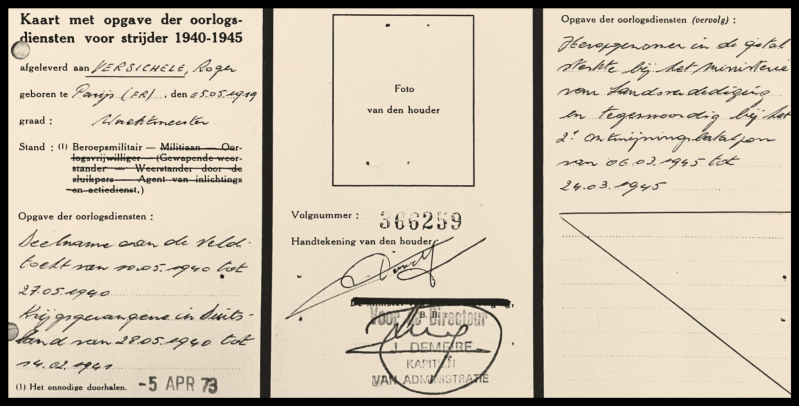 Kaart met opgave der oorlogs-
diensten voor strijder 1940-1945
afgeleverd aan VERSICHELE, Roger
geboren te Parijs (FR) . den 05.05.1919
graad : Wachtmeester
Stand : (1) Beroepsmilitair — Militiaan — Oor-
logsvrijwilliger — (Gewapende weer-
stander — Weerstander door de
sluikpers — Agent van inlichtings
en actiedienst.)
Opgave der oorlogsdiensten :
Deelname aan de veld-
tocht van 10.05.1940 tot
27.05.1940
Krijgsgevangene in Duits-
land van 28.05.1940 tot
14.02.1941
(1) Het onnodige doorhalen.
-5 APR 73
Foto
van den houder
Volgnummer : 366259
Handtekening van den houder
Voor de Directeur
J. DEMEIRE
KAPITEIN
VAN ADMINISTRATIE
Opgave der oorlogsdiensten (vervolg) :
Heropgenomen in de getal
sterkte bij het Ministerie
van Landsverdediging
en tegenwoordig bij het
2e ontmijningsbataljon
van 06.03.1945 tot
24.03.1945